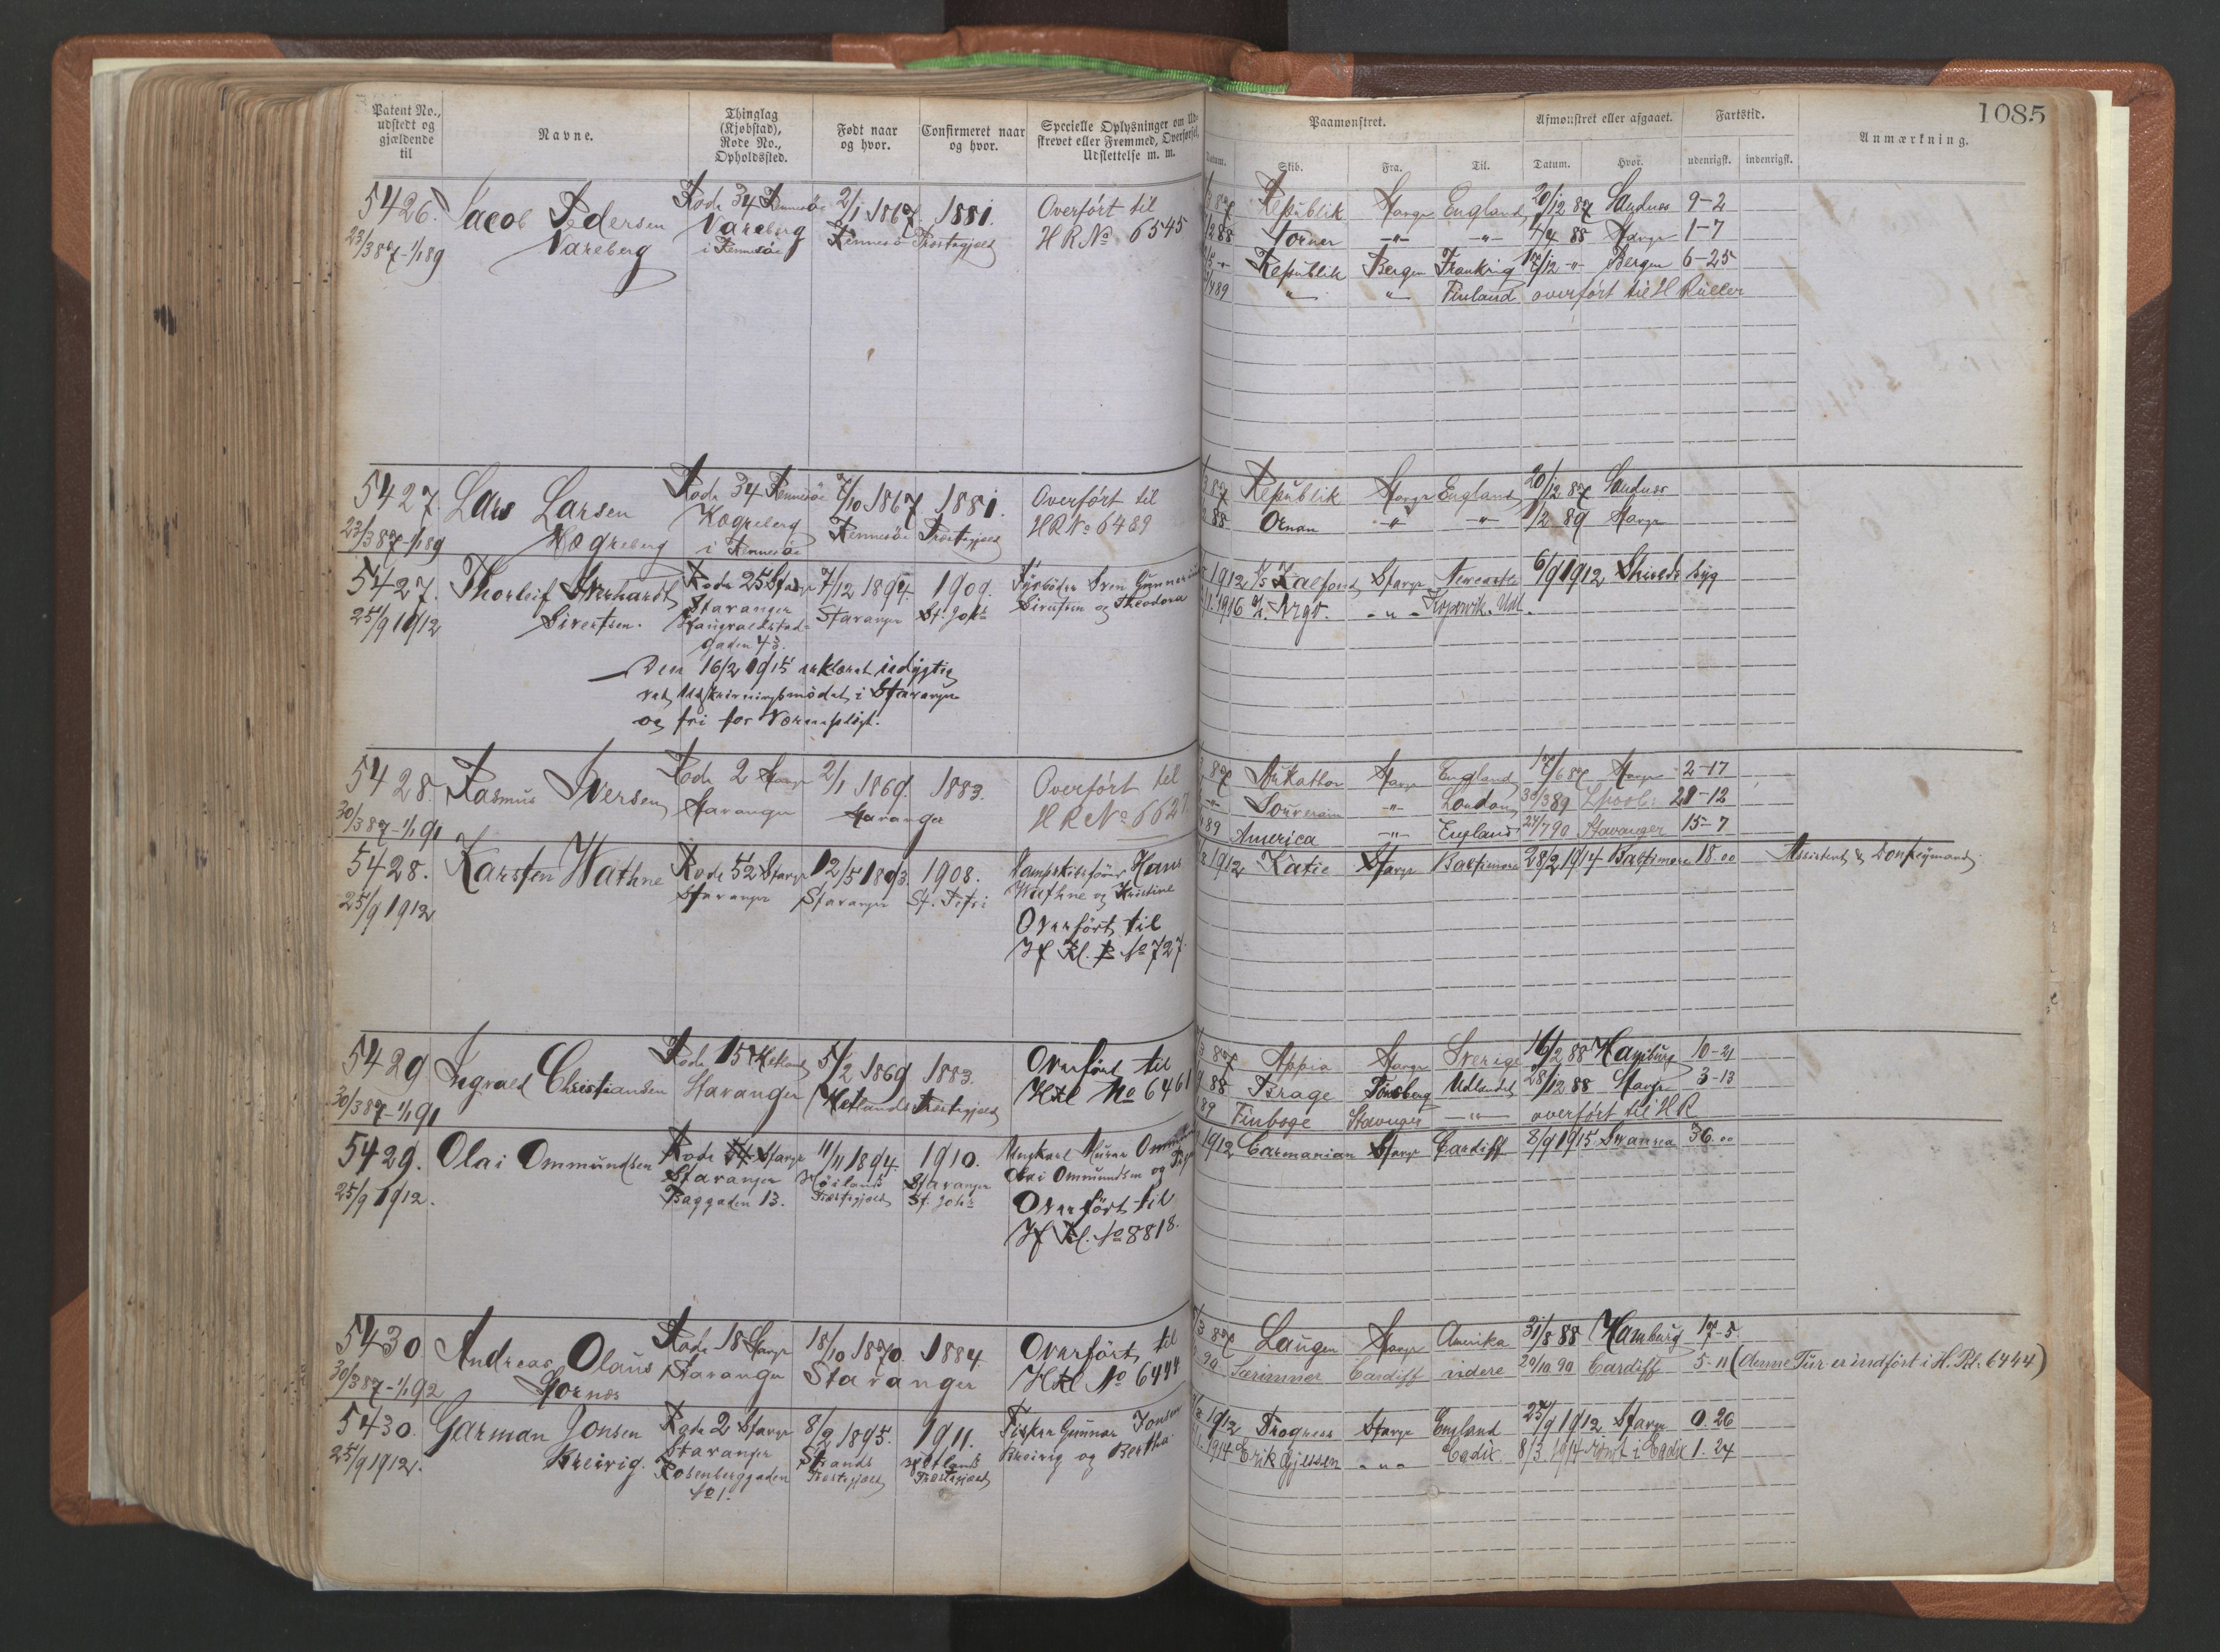 1085
Patent No., udstedt og gjældende til
Navne.
Thinglag (Kjøbstad), Rode No., Opholdssted.
Født naar og hvor.
Confirmeret naar og hvor.
Specielle Oplysninger om Udskrevet eller Fremmed, Overførsel, Udslettelse m. m.
Paamønstret.
Datum.
Skib.
Fra.
Til.
Afmønstret eller afgaaet.
Datum.
Hvor.
Fartstid.
udenrigsk.
indenrigsk.
Anmærkning.
5426. Jacob Pedersen Rode 34 Rennesöe 2/1 1867 1881. Overfört til
23/3 87-1/1 89 Vareberg Vareberg i Rennesöe Rennesö Præstegjeld HR No 6545
87 Republik Stavgr England 20/12 87 Sandnes 9-2
88 Torner -"- -"- 7/4 88 Stavgr 1-7
Republik Bergen Frankrig 17/12 -"- Bergen 6-25
89 " " Finland overfört til H Ruller
5427. Lars Larsen Rode 34 Rennesöe 7/10 1867 1881. Overfört til
23/3 87-1/1 89 Hægreberg i Rennesöe Rennesöe Præstegjeld HR No 6489
87 Republik Stavgr England 20/12 87 Sandnes
88 Ornan -"- -"- 1/2 89 Stavgr
5427. Thorleif Sverhardt Rode 25 Stavgr 7/12 1894. 1909. Fyrböder Sven Gunnerius
25/9 1912 Sivertsen. Stavanger Stavanger St. Johs Sivertsen og Theodora
gaden 43.
1912 Stavgr Newcastle 6/9 1912 Shields syg
1916 Stavgr -"- Kopervik. Udl.
Den 16/2 1915 erklæret udygtig
ved Udskrivningsmödet i Stavanger
og fri for Værnepligt.
5428. Rasmus Iversen Rode 2 Stavgr 2/1 1869. 1883. Overfört til
30/3 87-1/1 91 Stavanger Stavanger HR No 6627
87 Stavgr England 17/6 87 Stavgr 2-17
-"- Souverain -"- London 30/3 89 Lpool: 21-12
89 America -"- England 24/7 90 Stavanger 15-7
5428. Karsten Wathne Rode 52 Stavgr 12/5 1893. 1908. Dampskibsförer Hans
25/9 1912 Stavanger Stavanger St. Petri Wathne og Kristine
Overfört til
Hf Rl. B No 727.
1912 Katie Stavgr Baltimore 28/2 1914 Baltimore 18.00 Assistent & Donkeymand.
5429 Ingvald Christiansen Rode 15 Hetland 5/2 1869 1883. Overfört til
30/3 87-1/1 91 Stavanger Hetlands Præstegjeld HRl No 6461
87 Appia Stavgr Sverige 16/2 88 Hamburg 10-21
88 Brage Tönsberg Udlandet 28/12 88 Stavgr 3-13
89 Finboge Stavanger -"- overfört til HR
5429. Olai Ommundsen Rode Stavgr 11/11 1894. 1910.
25/9 1912. Stavanger Höilands Præstegjeld Stavanger St. Johs Olai Ommundsen og
Baggaden 13.
Overfört til
Hf Rl. No 8818.
1912 Carmanian Stavgr Cardiff 8/9 1915 Swansea 36.00
5430 Andreas Olaus Rode 18 Stavgr 18/10 1870. 1884 Overfört til
30/3 87-1/1 92 Hornæs Stavanger Stavanger HRl No 6444
87 Laugen Stavgr Amerika 31/8 88 Hamburg 17-5.
90 Særimner Cardiff videre 29/10 90 Cardiff 5-11 (denne Tur er indfört i H. Rl. 6444)
5430. Garman Jonsen Rode 2 Stavgr 8/2 1895. 1911. Fisker Gunnar Jonsen
25/9 1912. Breivig. Stavanger Strands Præstegjeld Hetlands Præstegjeld Breivig og Bertha
Rosenberggaden No 1.
1912 Progress Stavgr England 25/9 1912 Stavgr 0.26
1914 Erik Gjessen -"- Cadix 8/3 1914 römt i Cadix 1.24